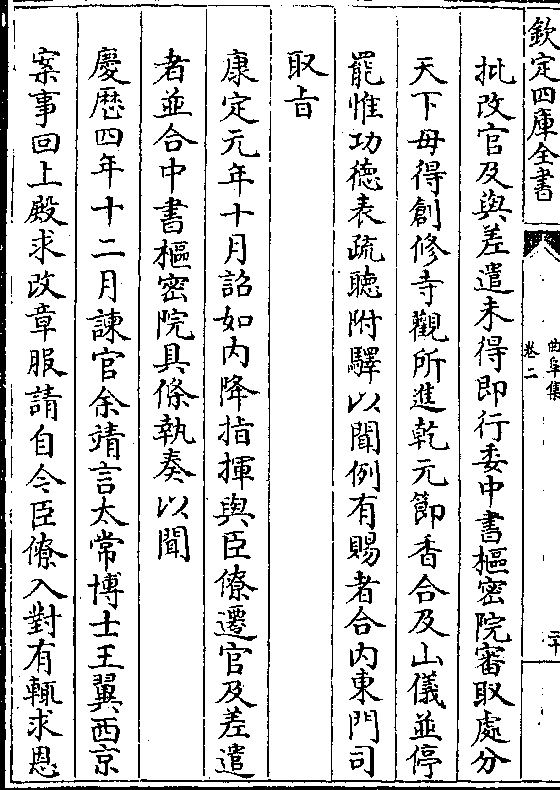 欽定四庫全書
曲阜集
卷二
二十
批改官及與差遣未得即行委中書樞密院審取處分
天下毋得創修寺觀所進乾元節香合及山儀並停
罷惟功德表疏聽附驛以聞例有賜者合内東門司
取旨
康定元年十月詔如内降指揮與臣僚遷官及差遣
者並合中書樞密院具條執奏以聞
慶歷四年十二月諫官余靖言太常博士王翼西京
案事回上殿求改章服請自今臣僚入對有輒求恩